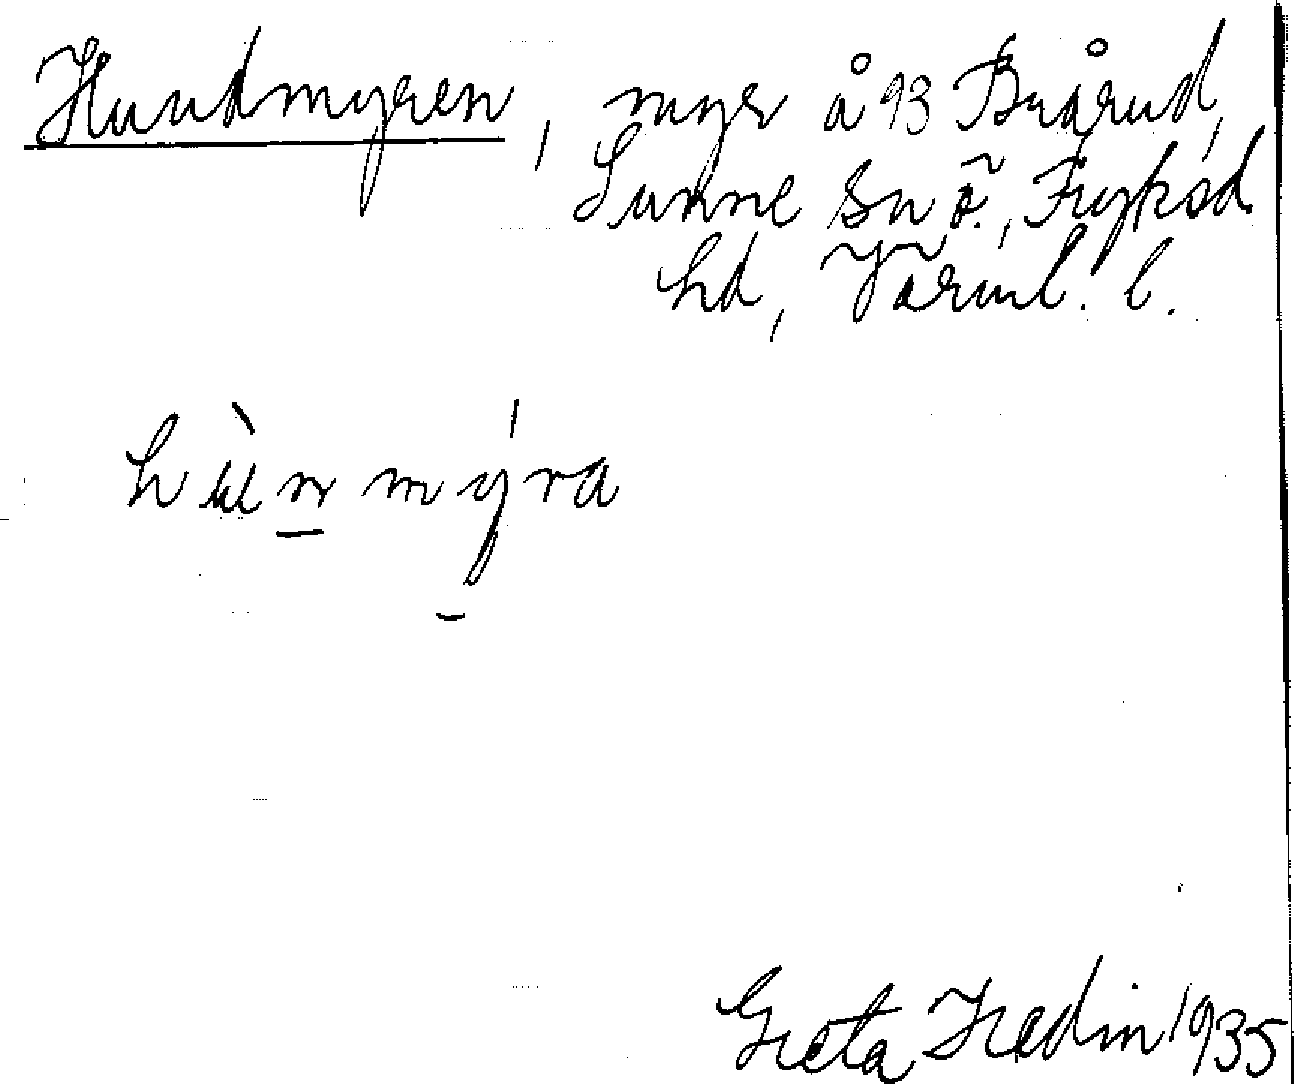 Hundmyren, myr å 93 Brårud,
Sunne sn ö., Fryksd.
hd, Värml. l.
hùn mýra
Greta Hedin 1935